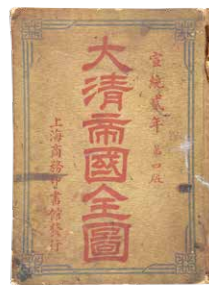 宣統貳年第四版
大清帝國全圖
上海商務印書館發行